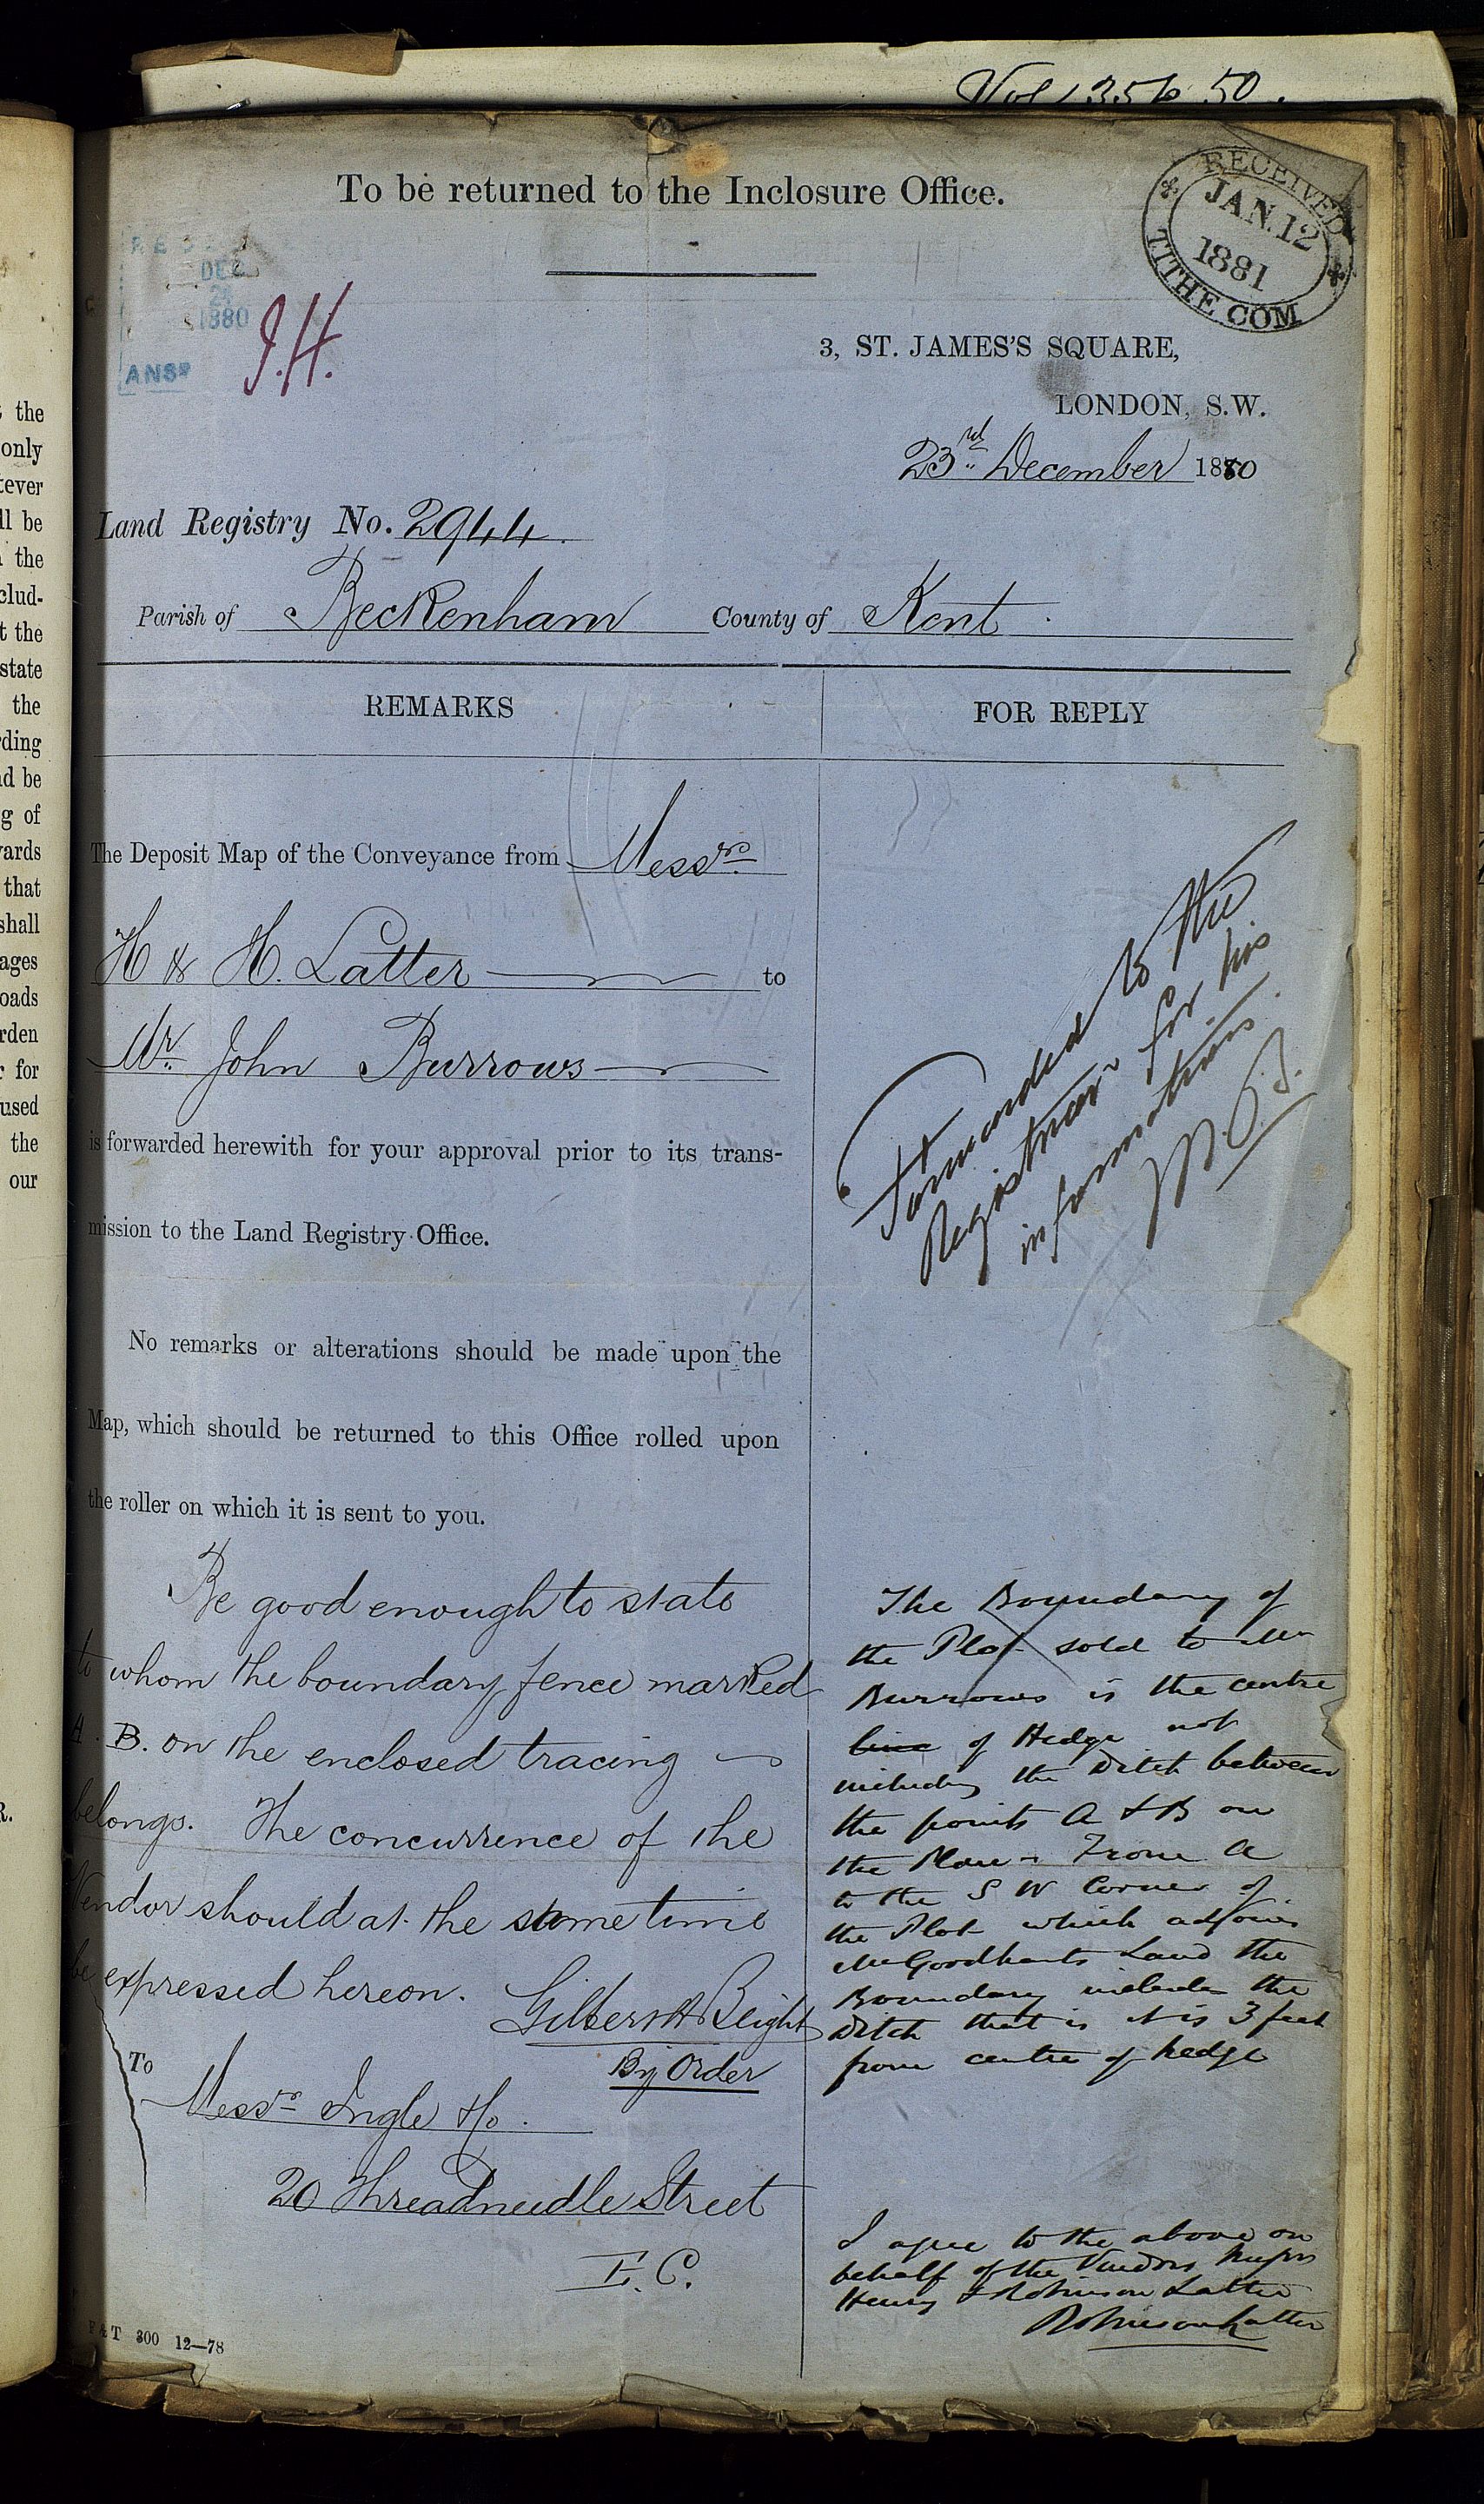 Vol 1356 50.
To be returned to the Inclosure Office.
RECEIVED
JAN. 12
1881
TITHE COM
DEC
1880
ANSD
J.H.
3, ST. JAMES'S SQUARE,
LONDON, S.W.
23rd December 1880
Land Registry No. 2944.
Parish of Beckenham County of Kent
REMARKS
FOR REPLY
The Deposit Map of the Conveyance from Messrs
H & H. Latter to
Mr John Burrows
is forwarded herewith for your approval prior to its trans-
mission to the Land Registry Office.
No remarks or alterations should be made upon the
Map, which should be returned to this Office rolled upon
the roller on which it is sent to you.
Be good enough to state
to whom the boundary fence marked
A. B. on the enclosed tracing
belongs. The concurrence of the
Vendor should at the same time
be expressed hereon.
Gilbert A Bleight
By Order
To
Messrs Ingle &Co.
20 Threadneedle Street
E.C.
F & T 300 12—78
Forwarded to the
Registrar for his
information.
The Boundary of
the Plot sold to Mr
Burrows is the centre
line of Hedge not
including the Ditch between
the points A & B on
the Plan - From A
to the S W Corner of
the Plot which adjoins
Mr Goodharts Land the
Boundary includes the
Ditch that is it is 3 feet
from centre of hedge
I agree to the above on
behalf of the Vendors Messrs
Henry & Robinson Latter
Robinson Latter
the
only
tever
ll be
the
clud-
t the
state
the
rding
nd be
g of
vards
that
shall
ages
oads
rden
r for
used
the
our
R.